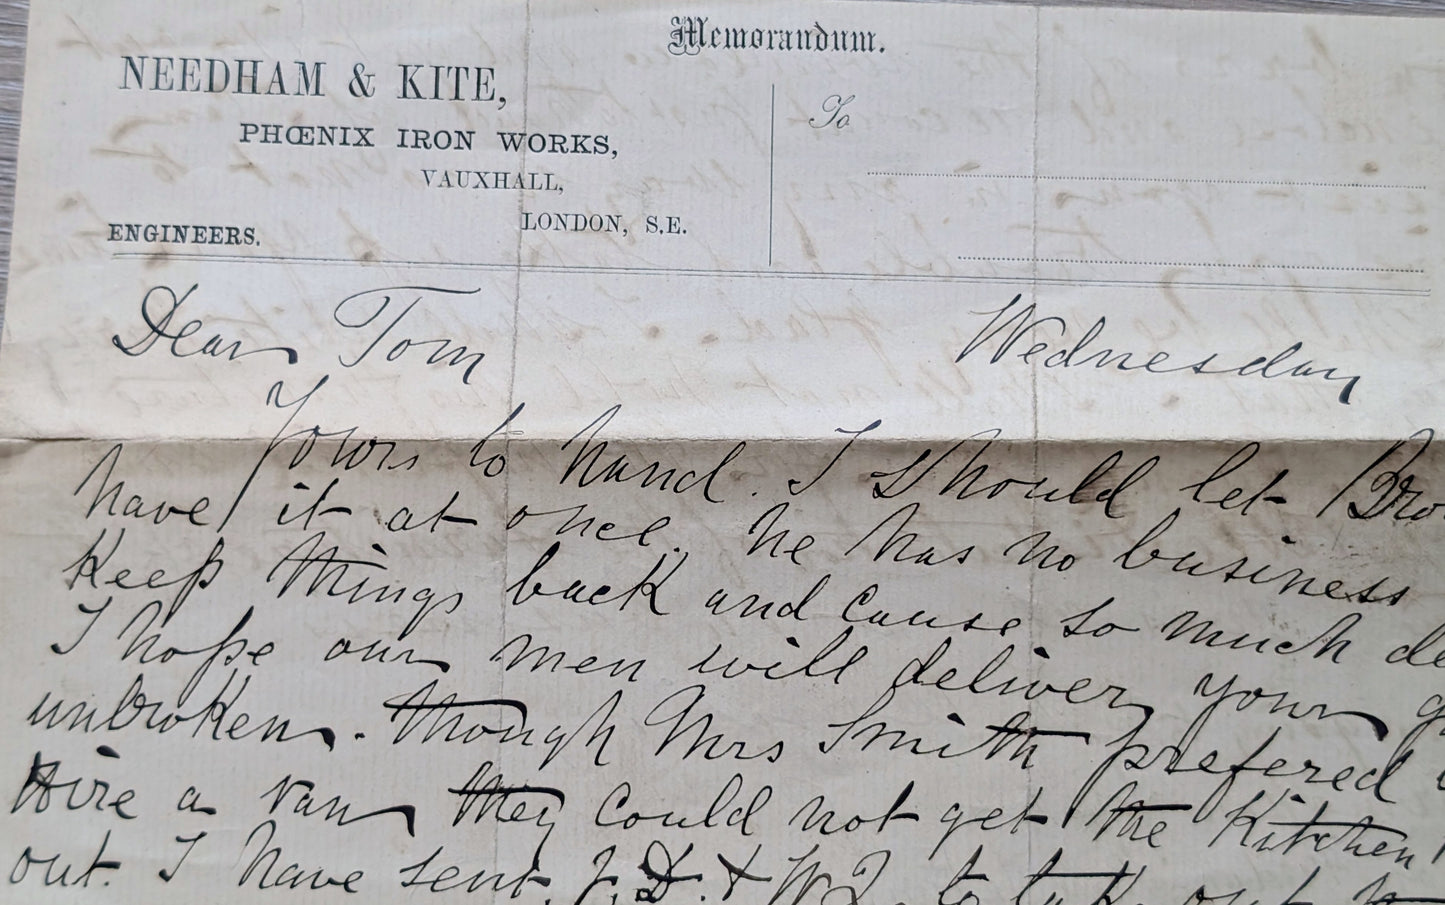 Memorandum.
NEEDHAM & KITE,
PHŒNIX IRON WORKS,
VAUXHALL,
LONDON, S.E.
ENGINEERS.
To
Dear Tom Wednesday
Yours to hand. I should let Bro
have it at once. he has no business
Keep things back and cause so much de
I hope our men will deliver your g
unbroken. though Mrs Smith prefered
Hire a van they could not get the Kitchen
out. I have sent J. D. & W J. to take out